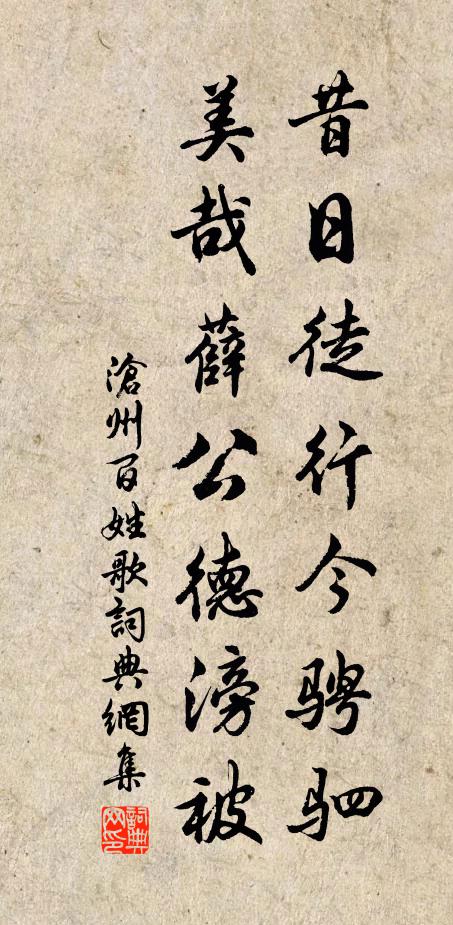 昔日徒行今骋驷
美哉薛公德滂被
滄州百姓歌詞典網集
詞典
网印